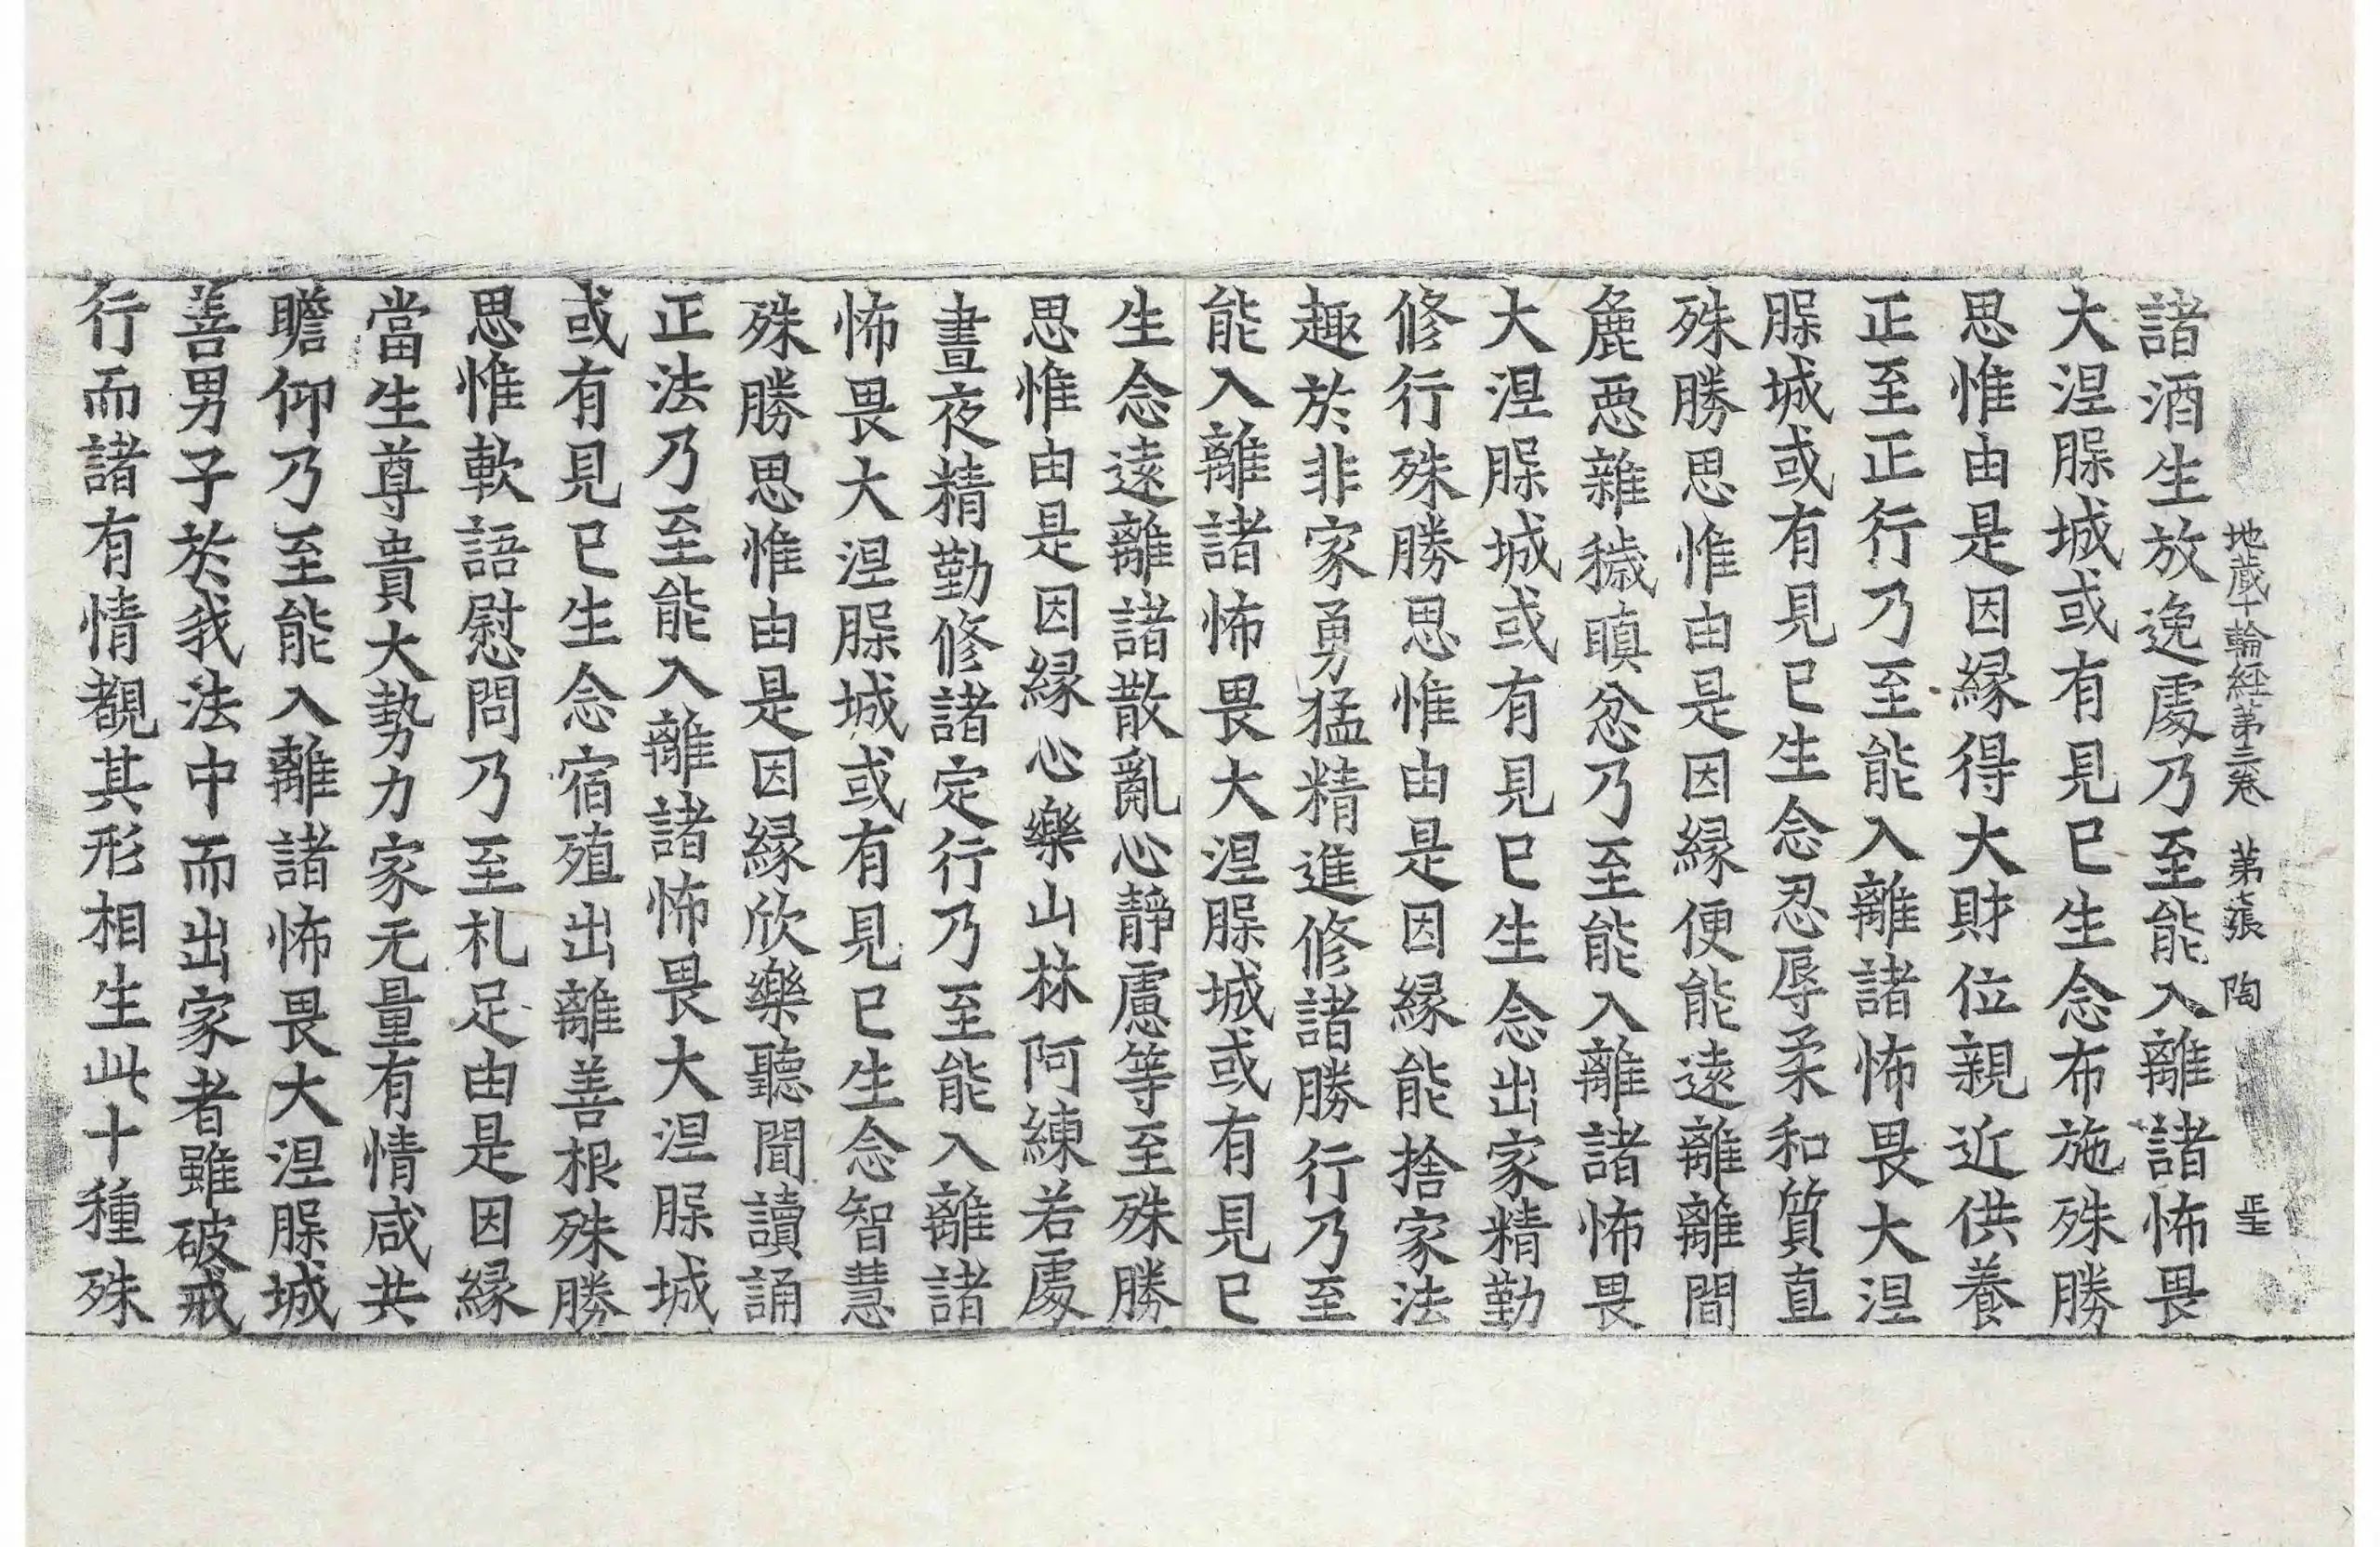 地蔵十輪経第三卷 第七張 陶
諸酒生放逸處乃至能入離諸怖畏
大涅槃城或有見已生念布施殊勝
思惟由是因縁得大財位親近供養
正至正行乃至能入離諸怖畏大涅
槃城或有見已生念忍辱柔和質直
殊勝思惟由是因縁便能遠離離間
麁惡雜穢瞋忿乃至能入離諸怖畏
大涅槃城或有見已生念出家精勤
修行殊勝思惟由是因縁能捨家法
趣於非家勇猛精進修諸勝行乃至
能入離諸怖畏大涅槃城或有見已
生念遠離諸散亂心静慮等至殊勝
思惟由是因縁心樂山林阿練若處
晝夜精勤修諸定行乃至能入離諸
怖畏大涅槃城或有見已生念智慧
殊勝思惟由是因縁欣樂聽聞讀誦
正法乃至能入離諸怖畏大涅槃城
或有見已生念宿殖出離善根殊勝
思惟軟語慰問乃至札足由是因縁
當生尊貴大勢力家无量有情咸共
瞻仰乃至能入離諸怖畏大涅槃城
善男子於我法中而出家者雖破戒
行而諸有情覩其形相生此十種殊